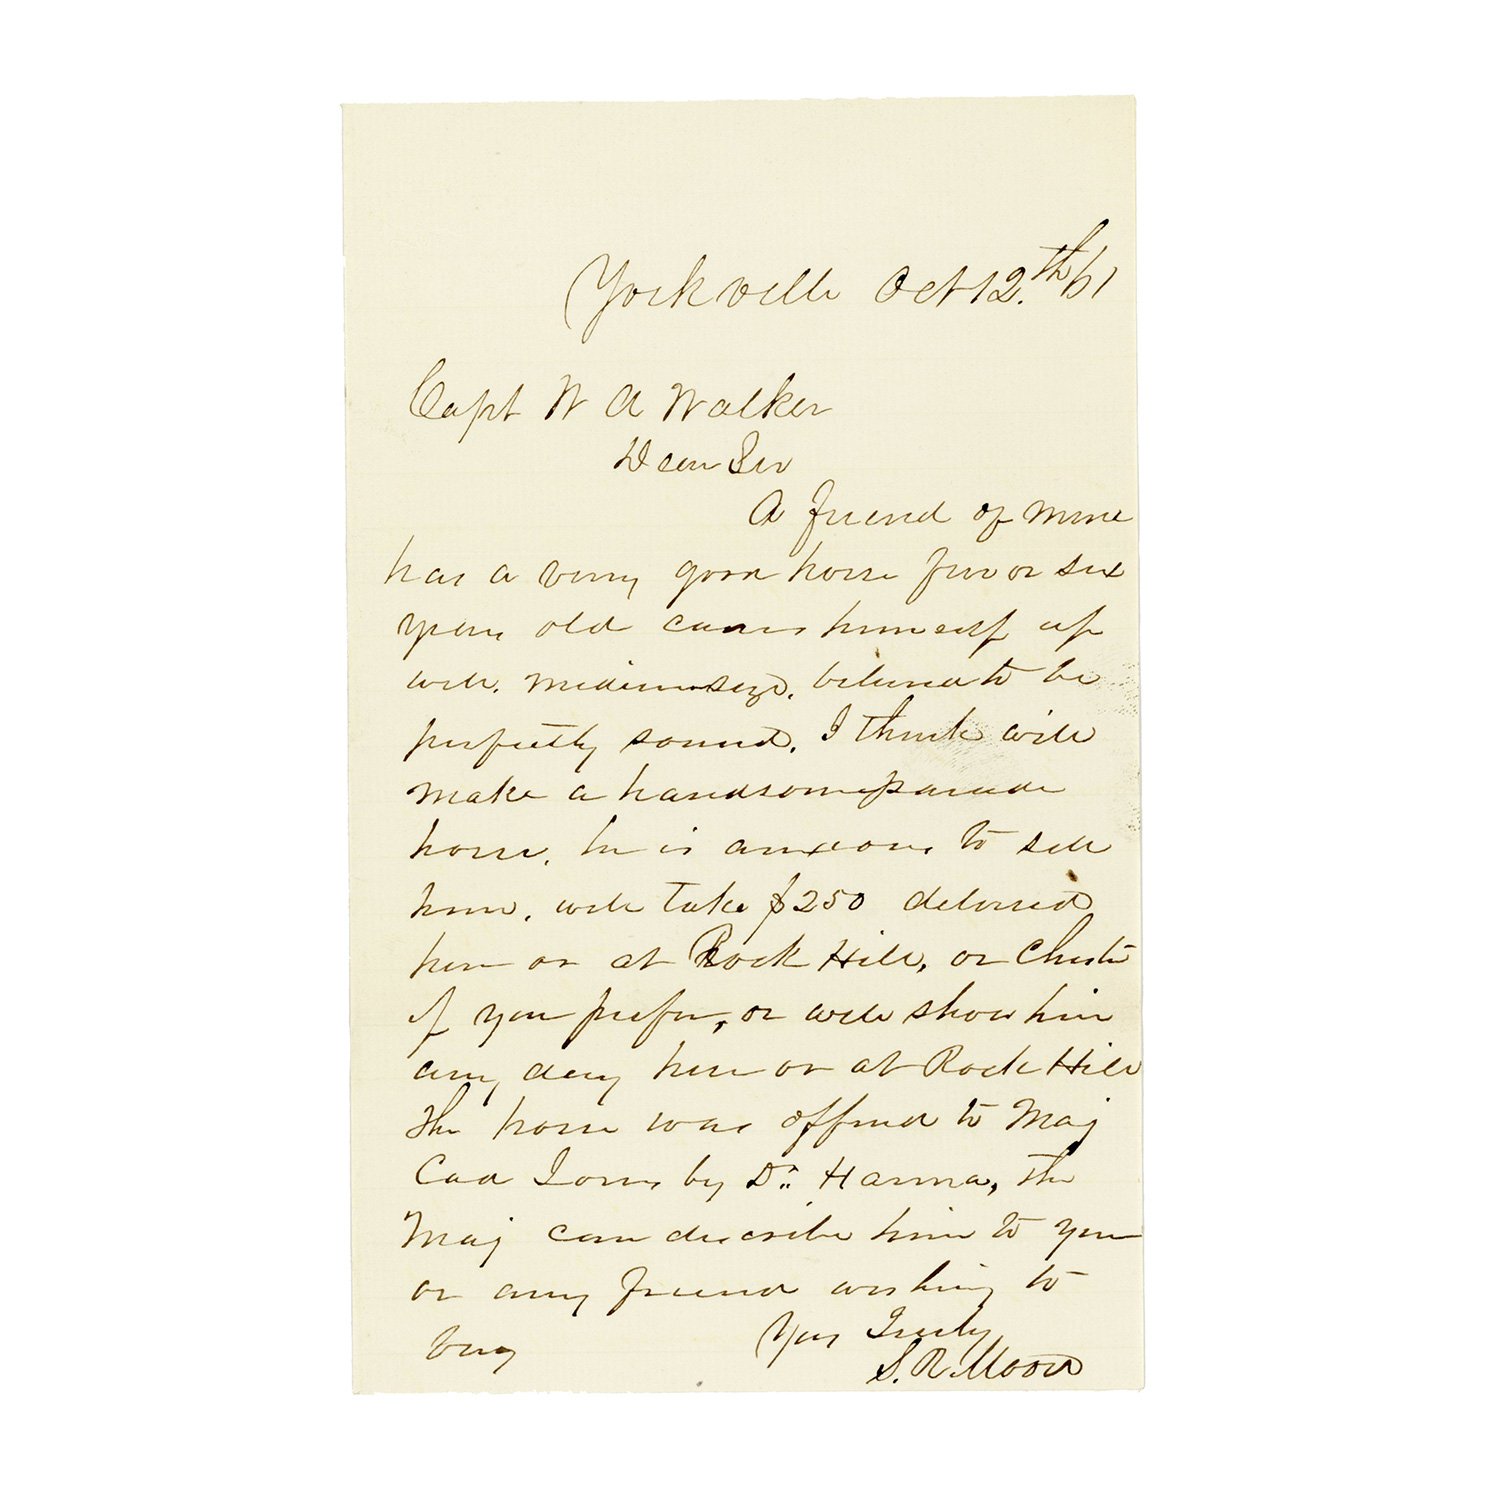 Yorkville Oct 12.th 61
Capt W A Walker
Dear Sir
A friend of mine
has a very good horse five or six
years old caries himself up
well. medium size. believed to be
perfectly sound. I think will
make a handsome parade
horse. he is anxious to sell
him. will take $250 delivered
here or at Rock Hill, or Chester
if you prefer, or will show him
any day here or at Rock Hill
The horse was offered to Maj
Cad Jones by Dr. Hanna, the
Maj can describe him to you
or any friend wishing to
buy Yours Truly
S. R. Moore